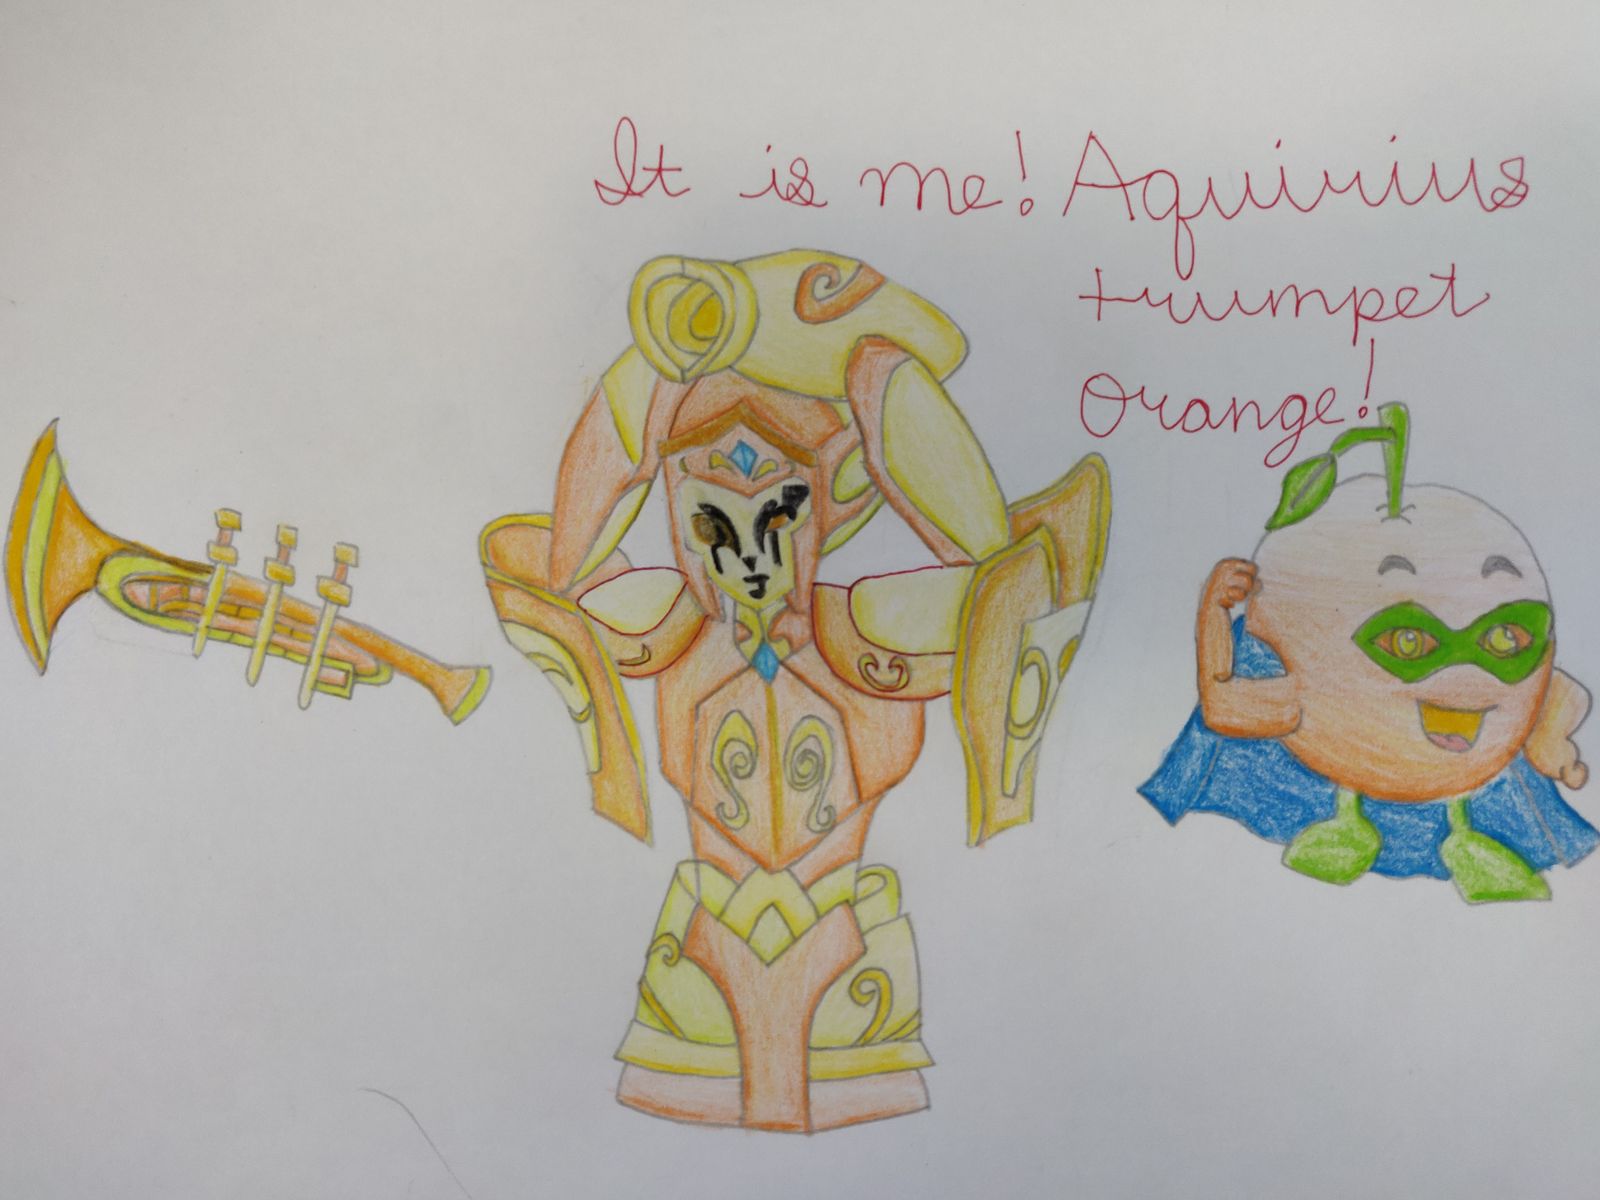 It is me! Aquirius
trumpet
Orange!